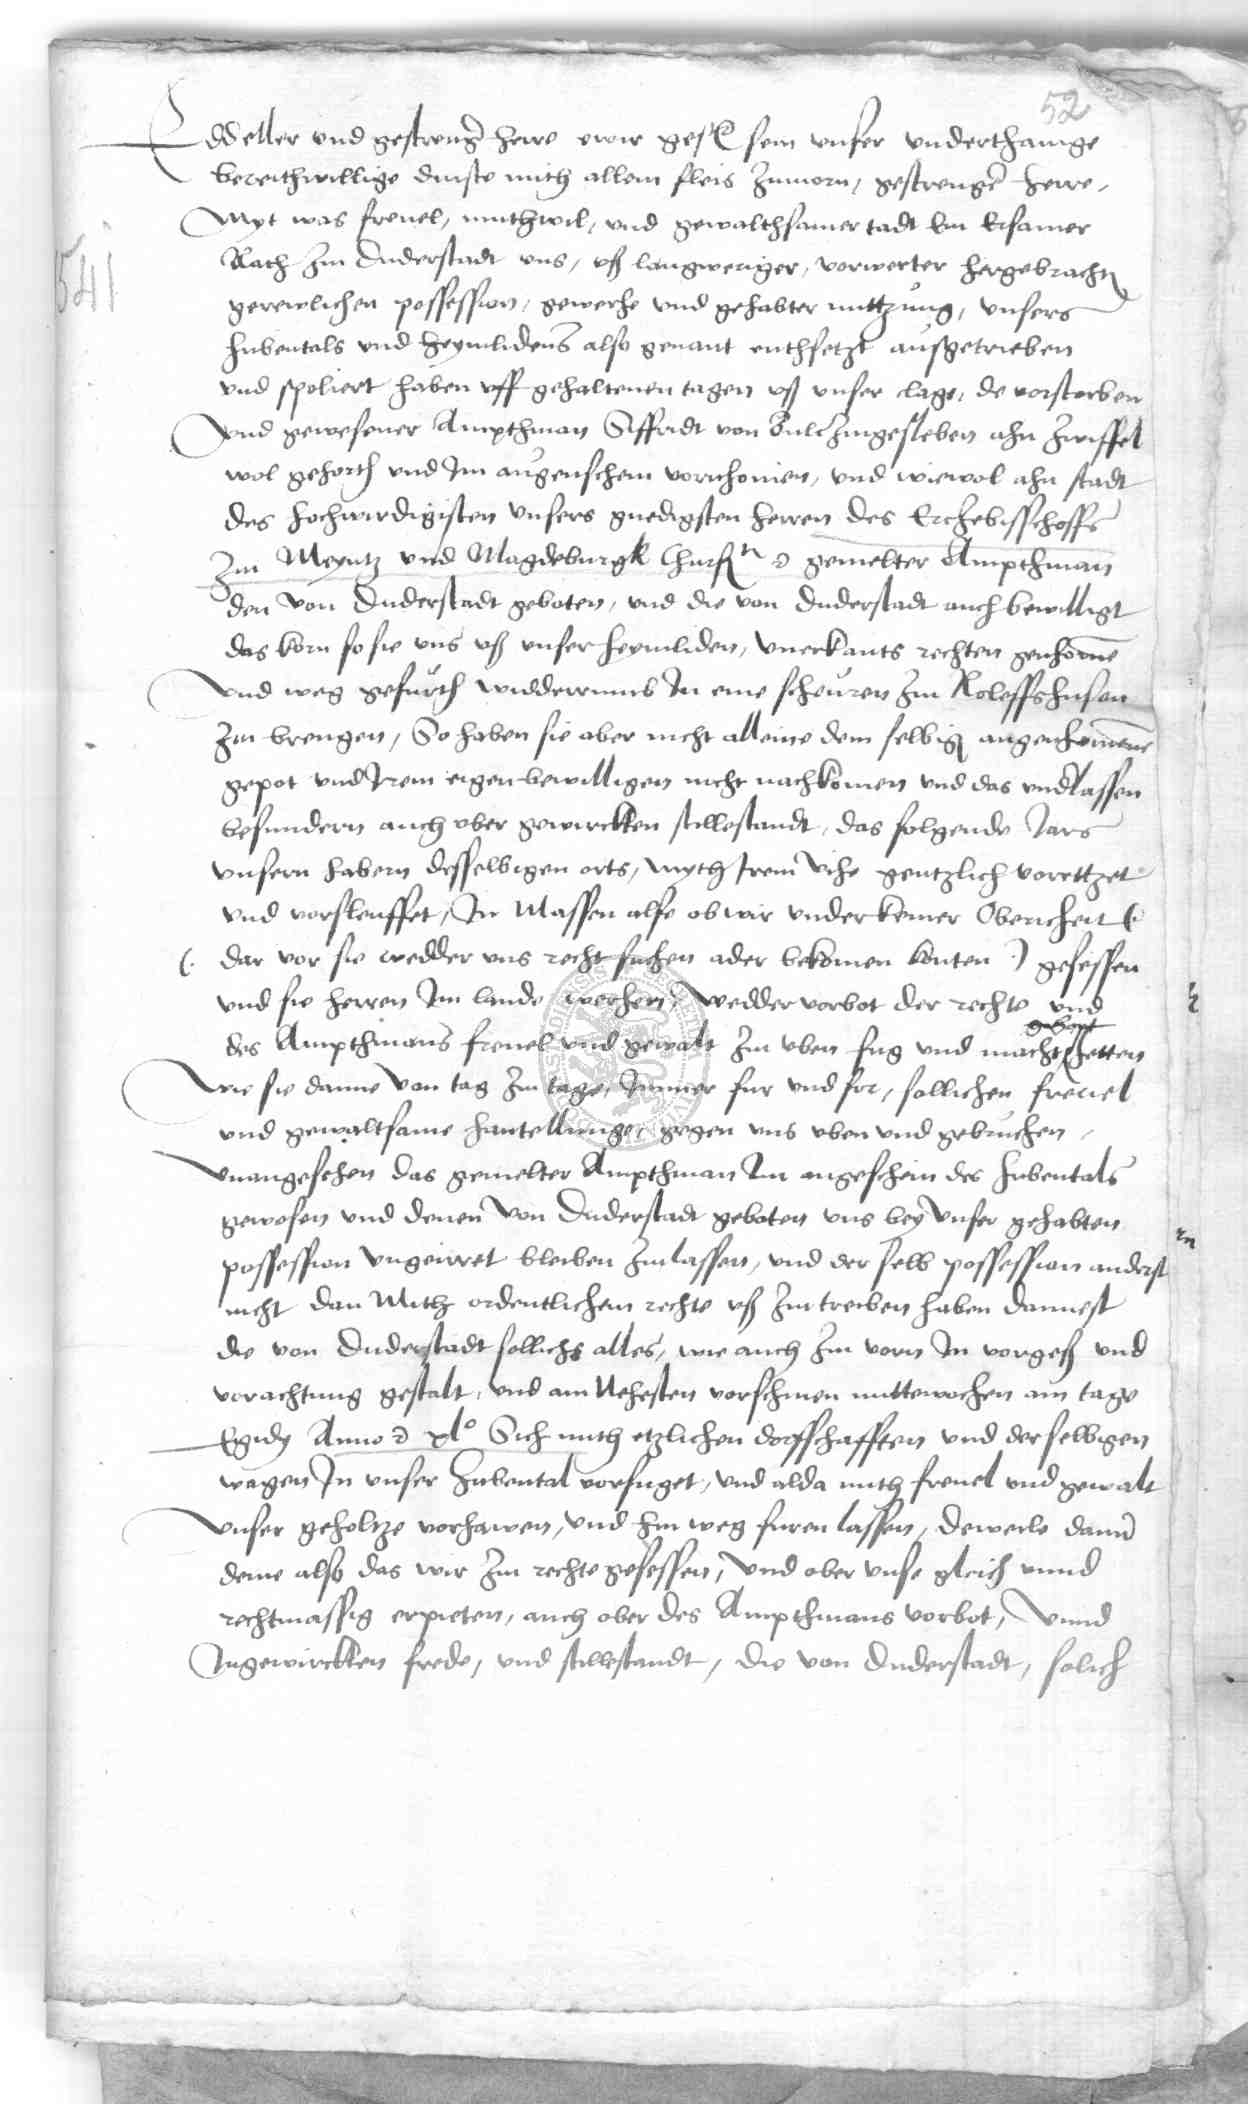 52
Eddeller und gestrenger herre ewir gest sein unser underthanige
bereithwillige dinste mith allem fleis zuuorn, gestrenger herre,
Myt was freuel, muthwil, und gewalthsamer tadt Ein Ersamer
541
Rath zu Duderstadt uns, uß langweriger, vorwerter hergebrachter
gerewlichen possession, gewerhe und gehabter nuttzung, unsers
hubentals und heymlidens also genant enthsetzt außgetrieben
und spoliert haben uff gehaltenen tagen uß unser clage, de vorstorben
Und gewesener Ampthman Siffridt von Bultzingesleben ahn zwiffel
wol gehorth und Im augenschein vornhomen, und wiewol ahn stadt
des hochwirdigisten unsers gnedigsten herren des Erchebisschoffs
Zu Meyntz und Magdeburgk Churf gemelter Ampthman
den von Duderstadt geboten, und die von duderstadt auch bewilligt
das korn so sie uns uß unser heymliden, unerkants rechten genhomen
Und weg gefurth widderumb In eine scheuren zu Roleffshusen
zu brengen, So haben sie aber nicht alleine dem selbigen angenhomene
gepot und Irem eigen bewilligen nicht nachkomen und das underlassen
besundern auch uber gewirckten stillestandt, das folgende Jars
unsern habern desselbigen orts, myth Irem vihe gentzlich vorettzet
und vorsleuffet, In Massen alse ob wir under keiner Obericheit (
(. dar vor sie wedder uns recht suchen ader bekomen konten .) gesessen
und sie herren Im lande werhen, wedder vorbot der rechte und
gebopt
des Ampthmans freuel und gewalt zu uben fug und macht hetten
Wie sie danne von tag zu tage, Immer fur und fur, sollichen freuel
und gewaltsame hantellunge, gegen uns uben und gebruchen,
Unangesehen das gemelter Ampthman Im angeschein des hubentals
gewesen und denen von Duderstadt geboten uns bey unser gehabten
possession ungeirret bleiben zulassen, und der selb possession anderst
nicht dan Mith ordentlichem rechte uß zutreiben haben dannest
die von Duderstadt sollichs alles, wie auch zu vorn In vorgeß und
vorachtung gestalt, und am Nehesten vorschinen mittewochen am tage
Egidy Anno xlo Sich mith etzlichen dorffschafften und der selbigen
wagen In unser hubental vorfuget, und alda mith freuel und gewalt
Unser geholtze vorhawen, und hin weg furen lassen, deweile dann
deme also das wir zu rechte gesessen, Und ober unse gleich unnd
rechtmassig erpieten, auch ober des Ampthmans vorbot, Unnd
Ingewirckten frede, und stillestandt, die von Duderstadt, solich